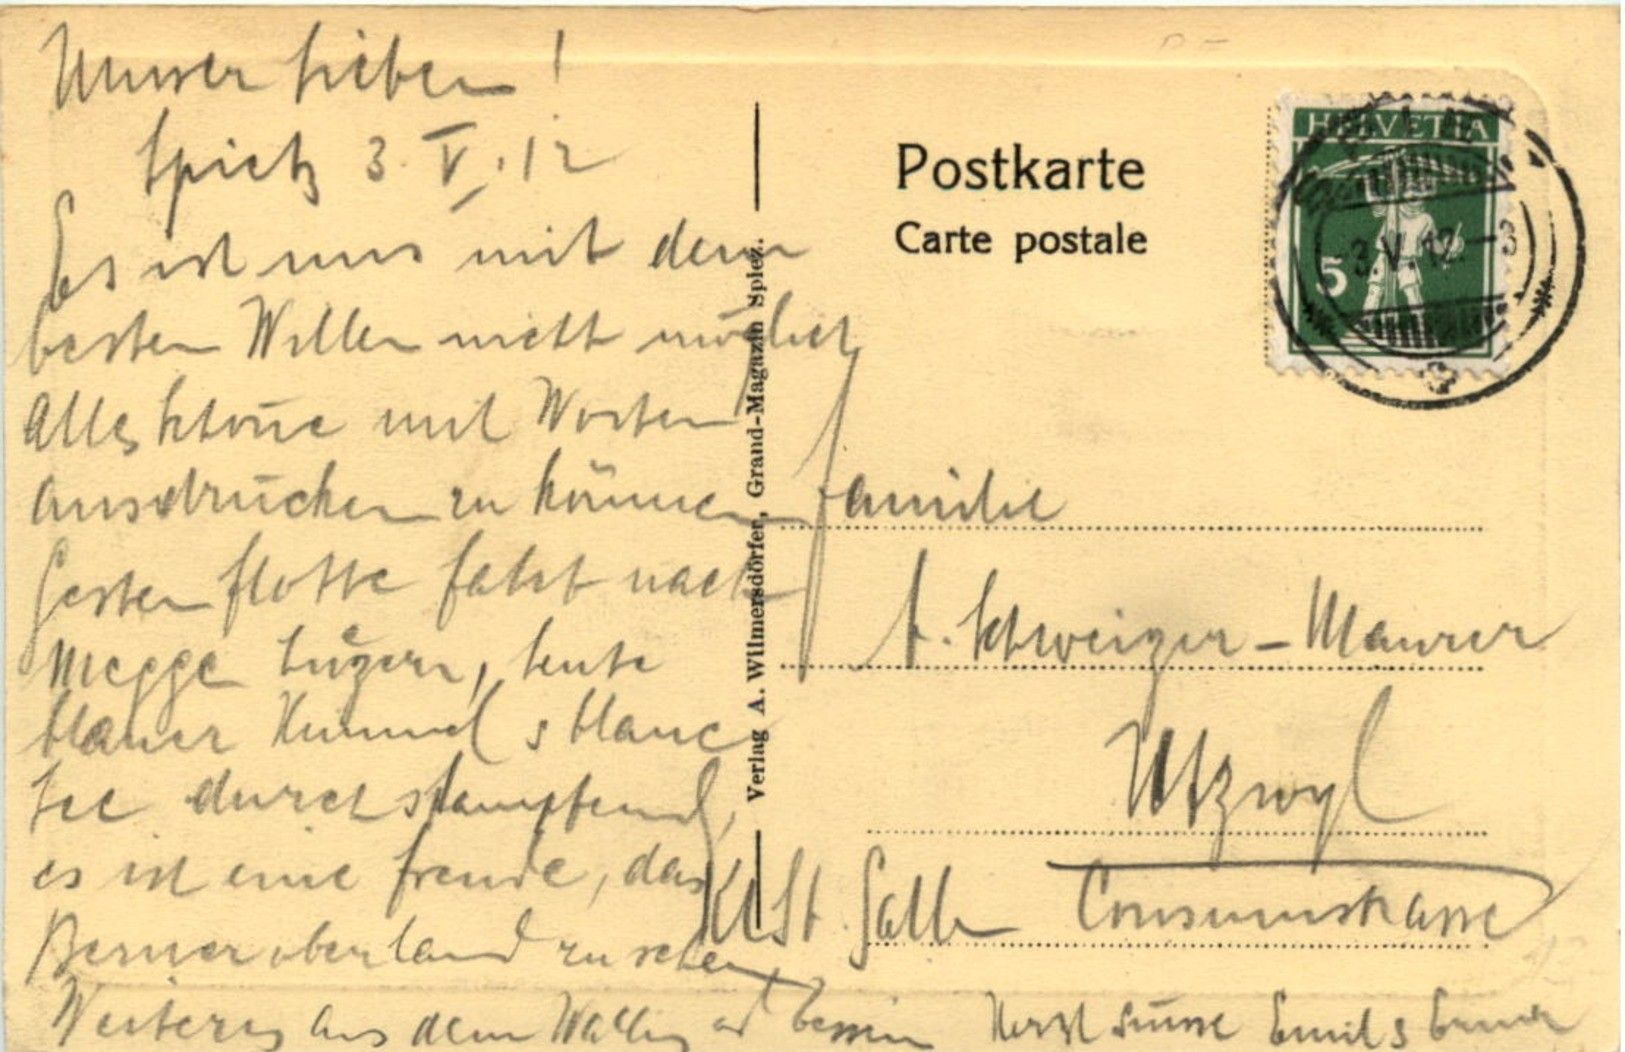 Unsere Lieben!
Spietz 3. V. 12
Es ist uns mit dem
besten Willen nicht möglich
Alles Schöne mit Worten
ausdrücken zu können
Gestern flotte Fahrt nach
Megge Luzern, heute
blauer Himmel & blaue
See durchstampfend,
es ist eine Freude, das
Berner oberland zu sehen
Weiteres aus dem Wallis
Herzl Grüsse Emil &
Verlag A. Wilmersdörfer, Grand-Magazin Spiez.
Postkarte
Carte postale
HELVETIA
5
3. V. 12.–3
Familie
A. Schweizer–Maurer
Utzwyl
Kt St. Gallen Consumstrasse